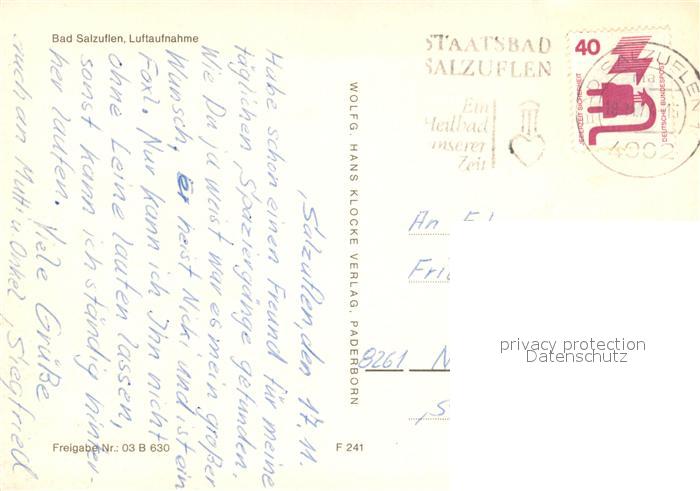 Bad Salzuflen, Luftaufnahme
Salzuflen, den 17.11.
Habe schon einen Freund für meine
täglichen Spaziergänge gefunden.
Wie Du ja weist war es mein großer
Wunsch, er heist Nicki und ist ein
Foxl. Nur kann ich Ihn nicht
ohne Leine laufen lassen,
sonst kann ich ständig hinter-
her laufen. Viele Grüße
auch an Mutti u. Onkel, Siegfried
Freigabe Nr.: 03 B 630
F 241
WOLFG. HANS KLOCKE VERLAG, PADERBORN
STAATSBAD
SALZUFLEN
Ein
Heilbad
unserer
Zeit
40
JEDERZEIT SICHERHEIT
DEUTSCHE BUNDESPOST
SALZUFLEN
4902
An
8261
privacy protection
Datenschutz